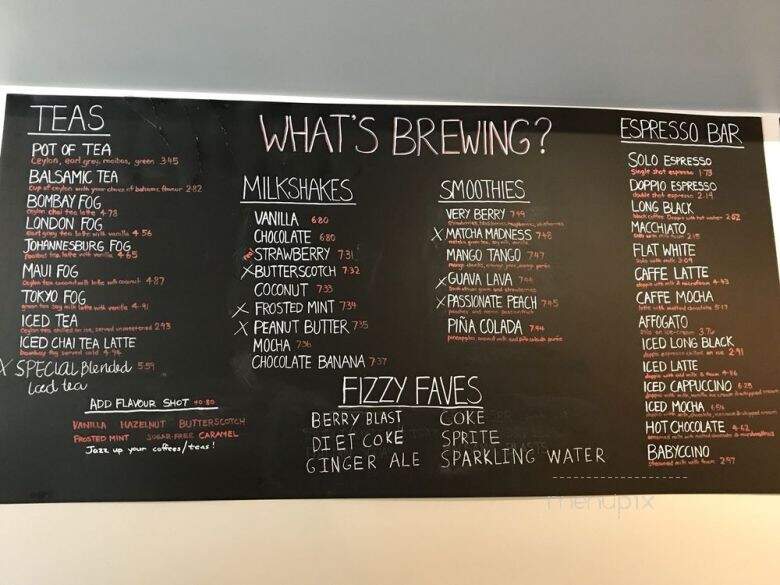 WHAT'S BREWING?
TEAS
POT OF TEA
Ceylon, earl grey, rooibos, green 3.45
BALSAMIC TEA
Cup of ceylon with your choice of balsamic flavour 2.82
BOMBAY FOG
Ceylon chai tea latte 4.78
LONDON FOG
Earl grey tea latte with vanilla 4.56
JOHANNESBURG FOG
Rooibos tea latte with vanilla 4.65
MAUI FOG
Ceylon tea coconut milk latte with coconut 4.87
TOKYO FOG
green tea soy milk latte with vanilla 4.91
ICED TEA
Ceylon tea chilled on ice, served unsweetened 2.93
ICED CHAI TEA LATTE
bombay fog served cold 4.94
X SPECIAL Blended 5.59
Iced tea
ADD FLAVOUR SHOT +0.80
VANILLA HAZELNUT BUTTERSCOTCH
FROSTED MINT SUGAR-FREE CARAMEL
Jazz up your coffees/teas!
MILKSHAKES
VANILLA 6.80
CHOCOLATE 6.80
STRAWBERRY 7.31
X BUTTERSCOTCH 7.32
COCONUT 7.33
X FROSTED MINT 7.34
X PEANUT BUTTER 7.35
MOCHA 7.36
CHOCOLATE BANANA 7.37
SMOOTHIES
VERY BERRY 7.49
X MATCHA MADNESS 7.48
matcha green tea, soy milk, vanilla
MANGO TANGO 7.47
X GUAVA LAVA
X PASSIONATE PEACH 7.45
peaches and passionfruit
PIÑA COLADA 7.44
FIZZY FAVES
BERRY BLAST COKE
DIET COKE SPRITE
GINGER ALE SPARKLING WATER
ESPRESSO BAR
SOLO ESPRESSO
Single shot espresso 1.73
DOPPIO ESPRESSO
double shot espresso 2.14
LONG BLACK
black coffee. Doppio with hot water 2.62
MACCHIATO
FLAT WHITE
CAFFE LATTE
doppio with milk & microfoam 4.43
CAFFE MOCHA
latte with melted chocolate 5.17
AFFOGATO
ICED LONG BLACK
doppio espresso chilled on ice 2.91
ICED LATTE
ICED CAPPUCCINO 6.29
ICED MOCHA 6.54
HOT CHOCOLATE 4.62
steamed milk with melted chocolate & marshmallows
BABYCCINO
steamed milk with foam 2.97
menupix